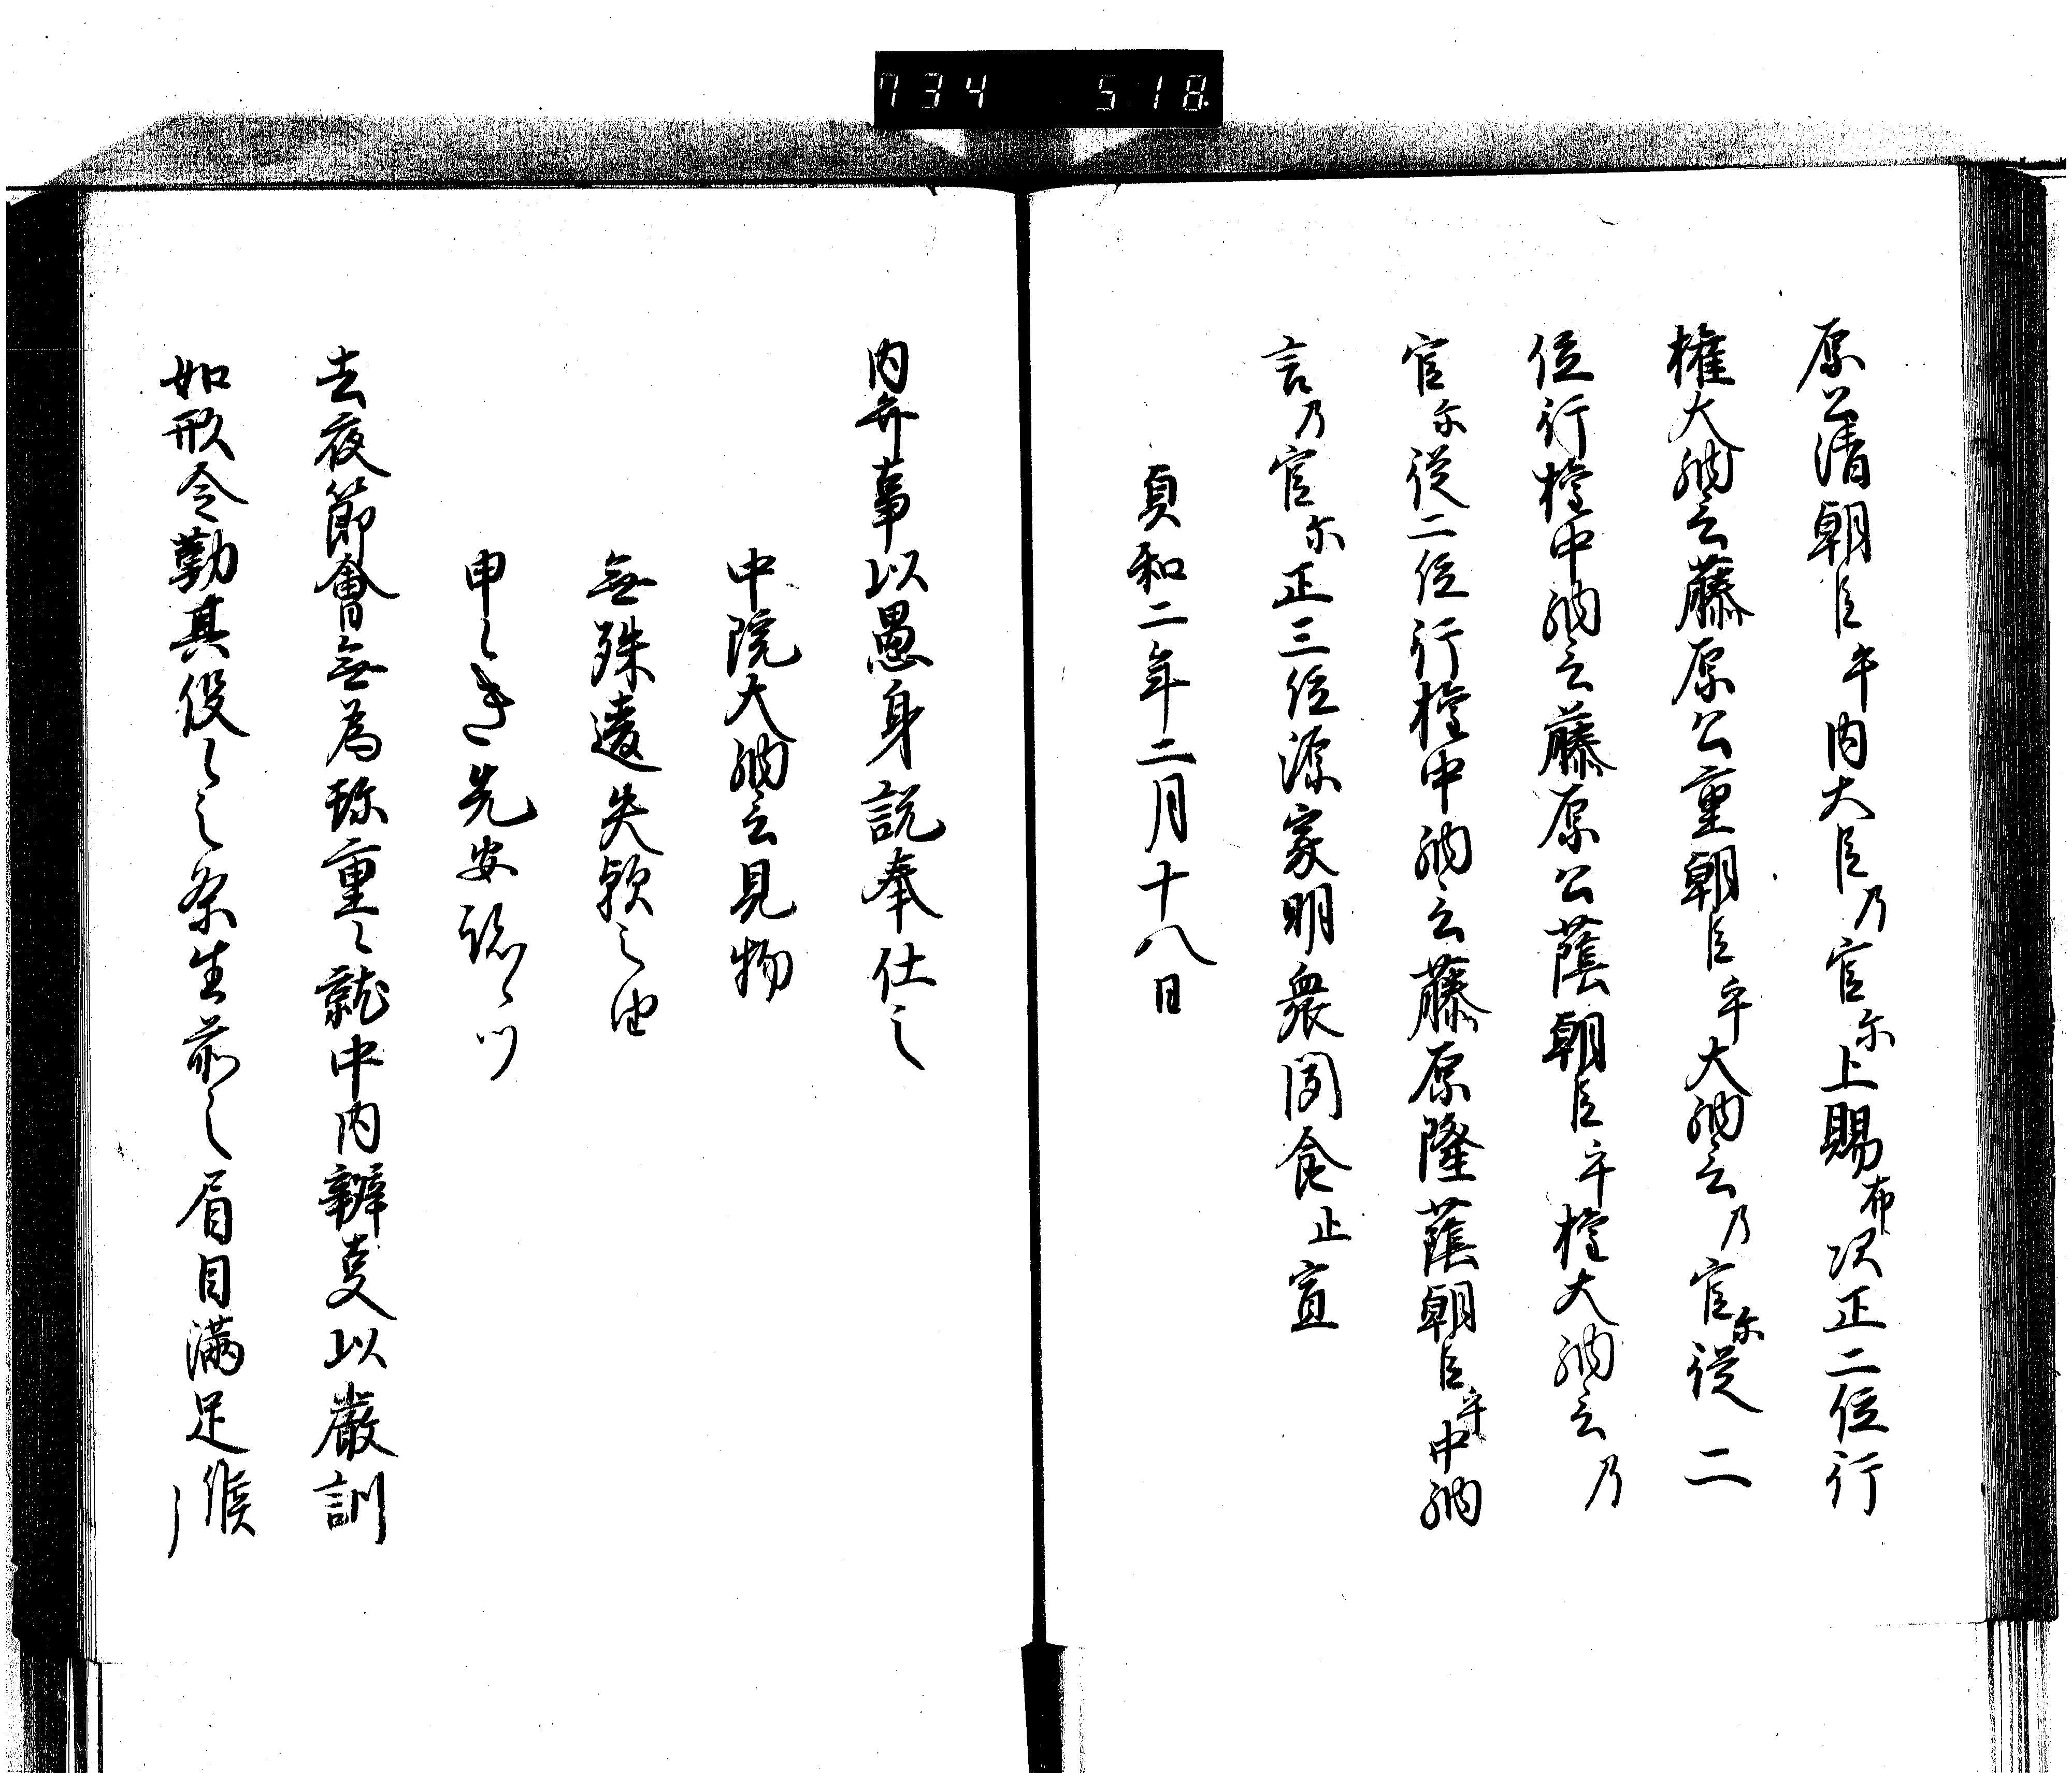 734 518
原公清朝臣乎内大臣乃官尓上賜布次正二位行
権大納言藤原公重朝臣乎大納言乃官尓従二
位行権中納言藤原公蔭朝臣乎権大納言乃
官尓従二位行権中納言藤原隆蔭朝臣乎中納
言乃官尓正三位源家明衆聞食止宣
貞和二年二月十八日
内弁事以愚身説奉仕之
中院大納言見物
無殊違失歟之由
申〻き先安
去夜節會無為珎重〻就中内辨事以嚴訓
如形令勤其役〻之条生前之眉目満足候